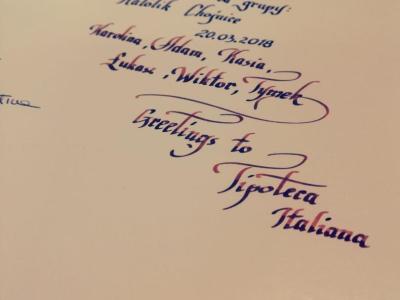 grupy:
Katolik Chojnice
20.03.2018
Karolina, Adam, Kasia,
Łukasz, Wiktor, Tymek
Greetings to
Tipoteca
Italiana